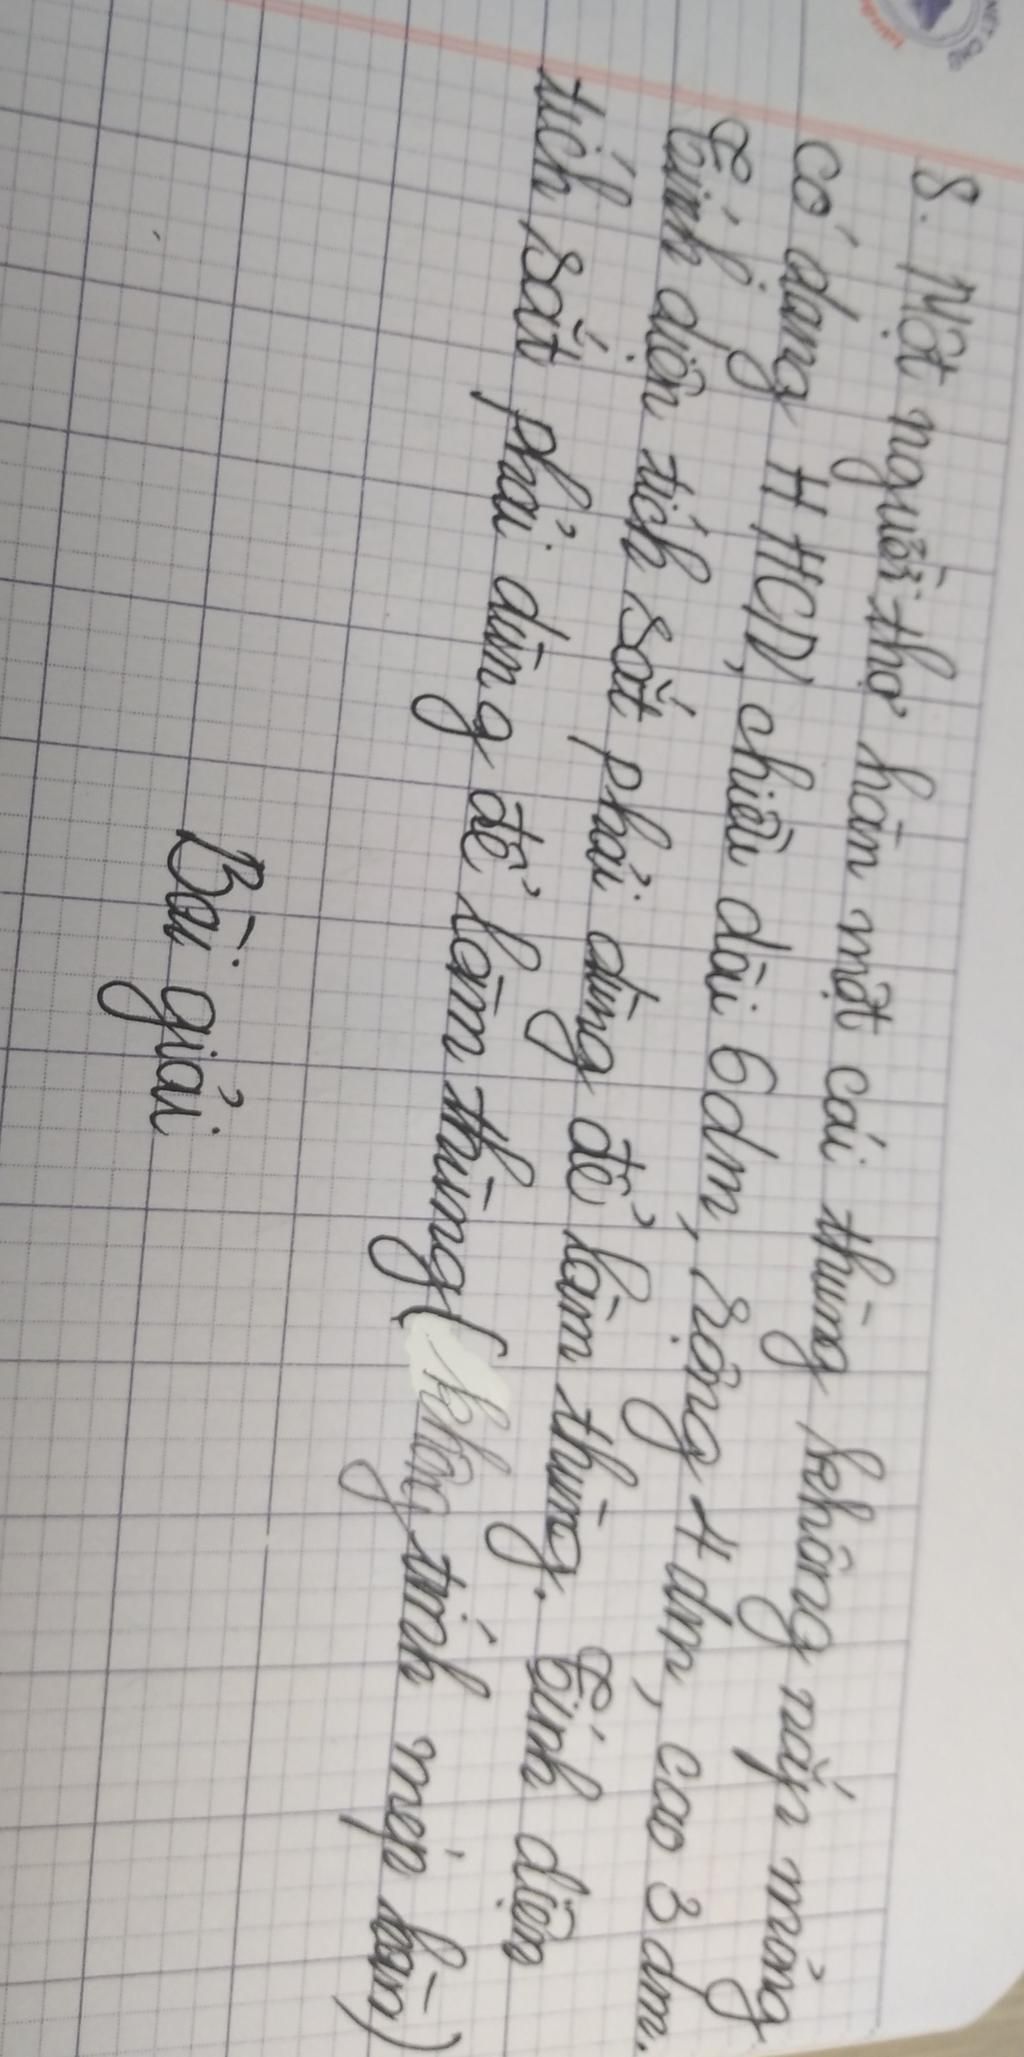 8. Một người thợ hàn một cái thùng không nắp mỏng
có dạng HHCN, chiều dài 6dm, rộng 4dm, cao 3dm.
Tính diện tích sắt phải dùng để làm thùng. Tính diện
tích sắt phải dùng để làm thùng( không tính mép hàn)
Bài giải